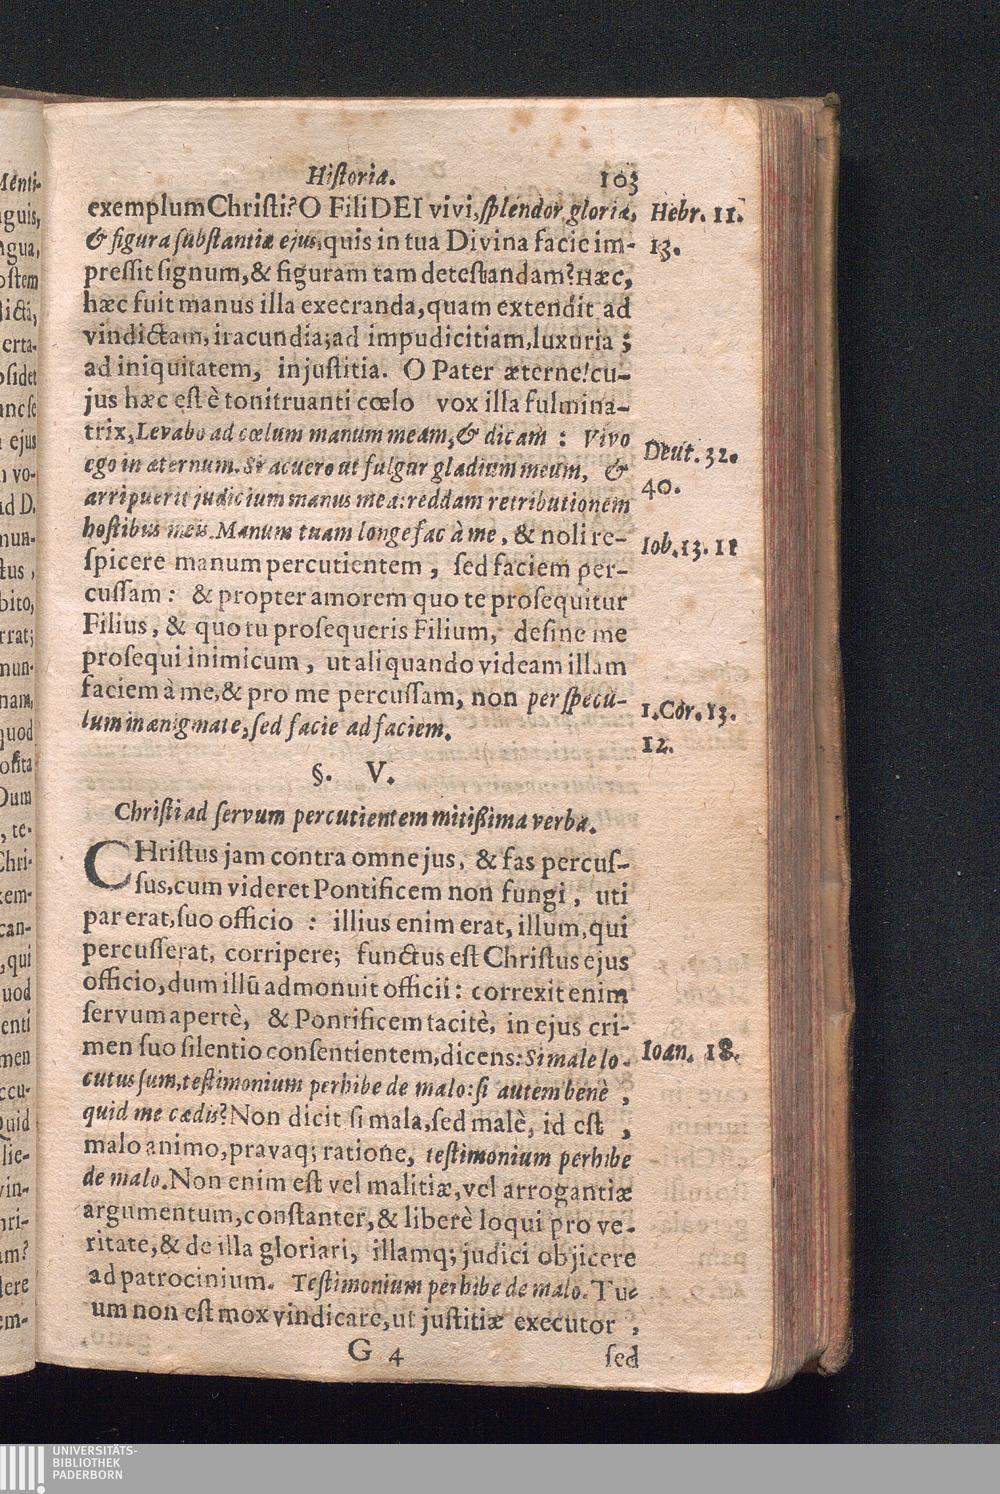 Historia. 103
exemplum Christi? O Fili DEI vivi, splendor gloriæ, Hebr. 11.
& figura substantiæ ejus, quis in tua Divina facie im- 13.
pressit signum, & figuram tam detestandam? Hæc,
hæc fuit manus illa execranda, quam extendit ad
vindictam, iracundia; ad impudicitiam, luxuria;
ad iniquitatem, injustitia. O Pater æterne! cu-
jus hæc est è tonitruanti cœlo vox illa fulmina-
trix, Levabo ad cœlum manum meam, & dicam: Vivo
ego in æternum. Si acuero ut fulgur gladium meum, & Deut. 32.
arripuerit judicium manus mea: reddam retributionem 40.
hostibus meis. Manum tuam longe fac à me, & noli re-
spicere manum percutientem, sed faciem per- Iob. 13. 11
cussam: & propter amorem quo te prosequitur
Filius, & quo tu prosequeris Filium, desine me
prosequi inimicum, ut aliquando videam illam
faciem à me, & pro me percussam, non per specu-
lum in ænigmate, sed facie ad faciem. 1. Cor. 13.
12.
§. V.
Christi ad servum percutientem mitissima verba.
CHristus jam contra omne jus, & fas percus-
sus, cum videret Pontificem non fungi, uti
par erat, suo officio: illius enim erat, illum, qui
percusserat, corripere; functus est Christus ejus
officio, dum illũ admonuit officii: correxit enim
servum apertè, & Pontificem tacitè, in ejus cri-
men suo silentio consentientem, dicens: Si male lo- Ioan. 18.
cutus sum, testimonium perhibe de malo: si autem benè,
quid me cædis? Non dicit si mala, sed malè, id est,
malo animo, pravaq; ratione, testimonium perhibe
de malo. Non enim est vel malitiæ, vel arrogantiæ
argumentum, constanter, & liberè loqui pro ve-
ritate, & de illa gloriari, illamq; judici objicere
ad patrocinium. Testimonium perhibe de malo. Tu-
um non est mox vindicare, ut justitiæ executor,
G 4 sed
UNIVERSITÄTS-
BIBLIOTHEK
PADERBORN